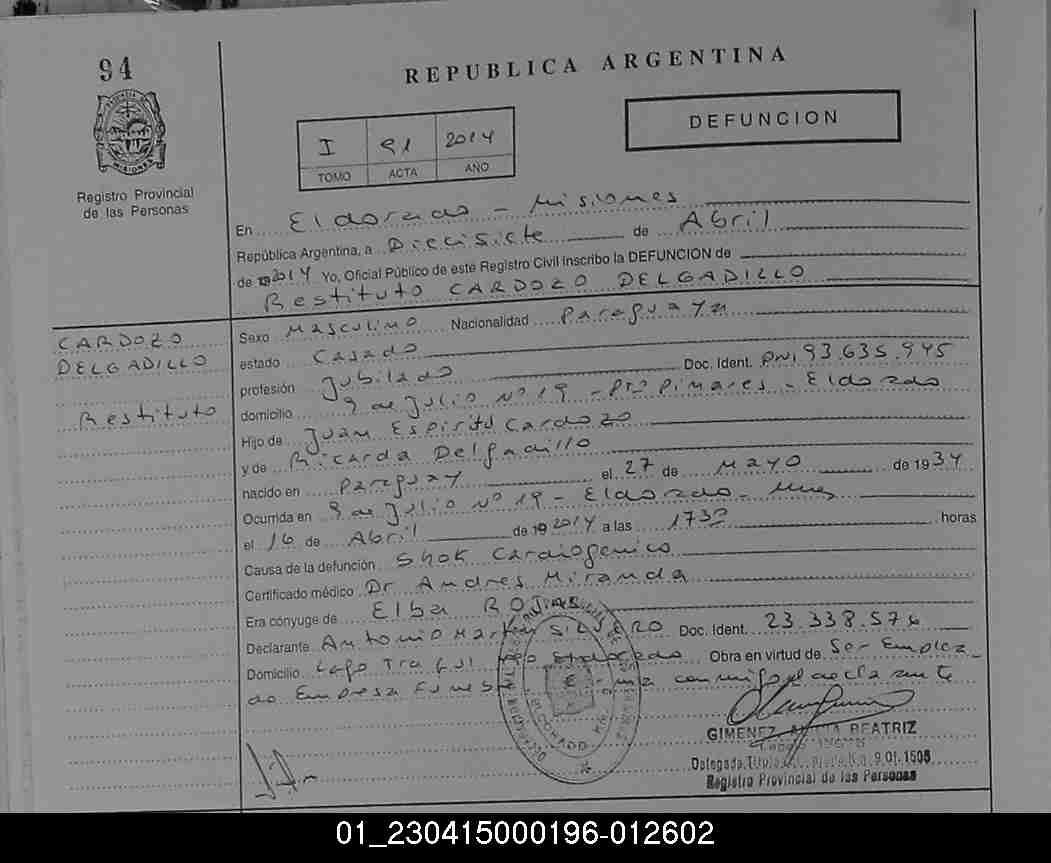 94
REPUBLICA ARGENTINA
DEFUNCION
I 91 2014
TOMO ACTA AÑO
Registro Provincial
de las Personas
En Eldorado - Misiones
República Argentina, a Diecisiete de Abril
de 2014 Yo, Oficial Público de este Registro Civil inscribo la DEFUNCION de
Restituto CARDOZO DELGADILLO
CARDOZO
DELGADILLO
Restituto
Sexo Masculino Nacionalidad Paraguaya
estado Casado
profesión Jubilado Doc. Ident. DNI 93.635.945
domicilio 9 de Julio Nº 19 - Pinares - Eldorado
Hijo de Juan Espiritu Cardozo
y de Ricarda Delgadillo
nacido en Paraguay el 27 de Mayo de 1934
Ocurrida en 9 de Julio Nº 19 - Eldorado - Mnes
el 16 de Abril de 2014 a las 1730 horas
Causa de la defunción Shok Cardiogenico
Certificado médico Dr Andres Miranda
Era cónyuge de Elba ROJAS
Declarante Antonio Martin SILVERO Doc. Ident. 23.338.576
Domicilio Eldorado Obra en virtud de Ser Emplea_
do Empresa Funeb conmigo el declarante
GIMENEZ BEATRIZ
Delegada Titular
Registro Provincial de las Personas
01_230415000196-012602